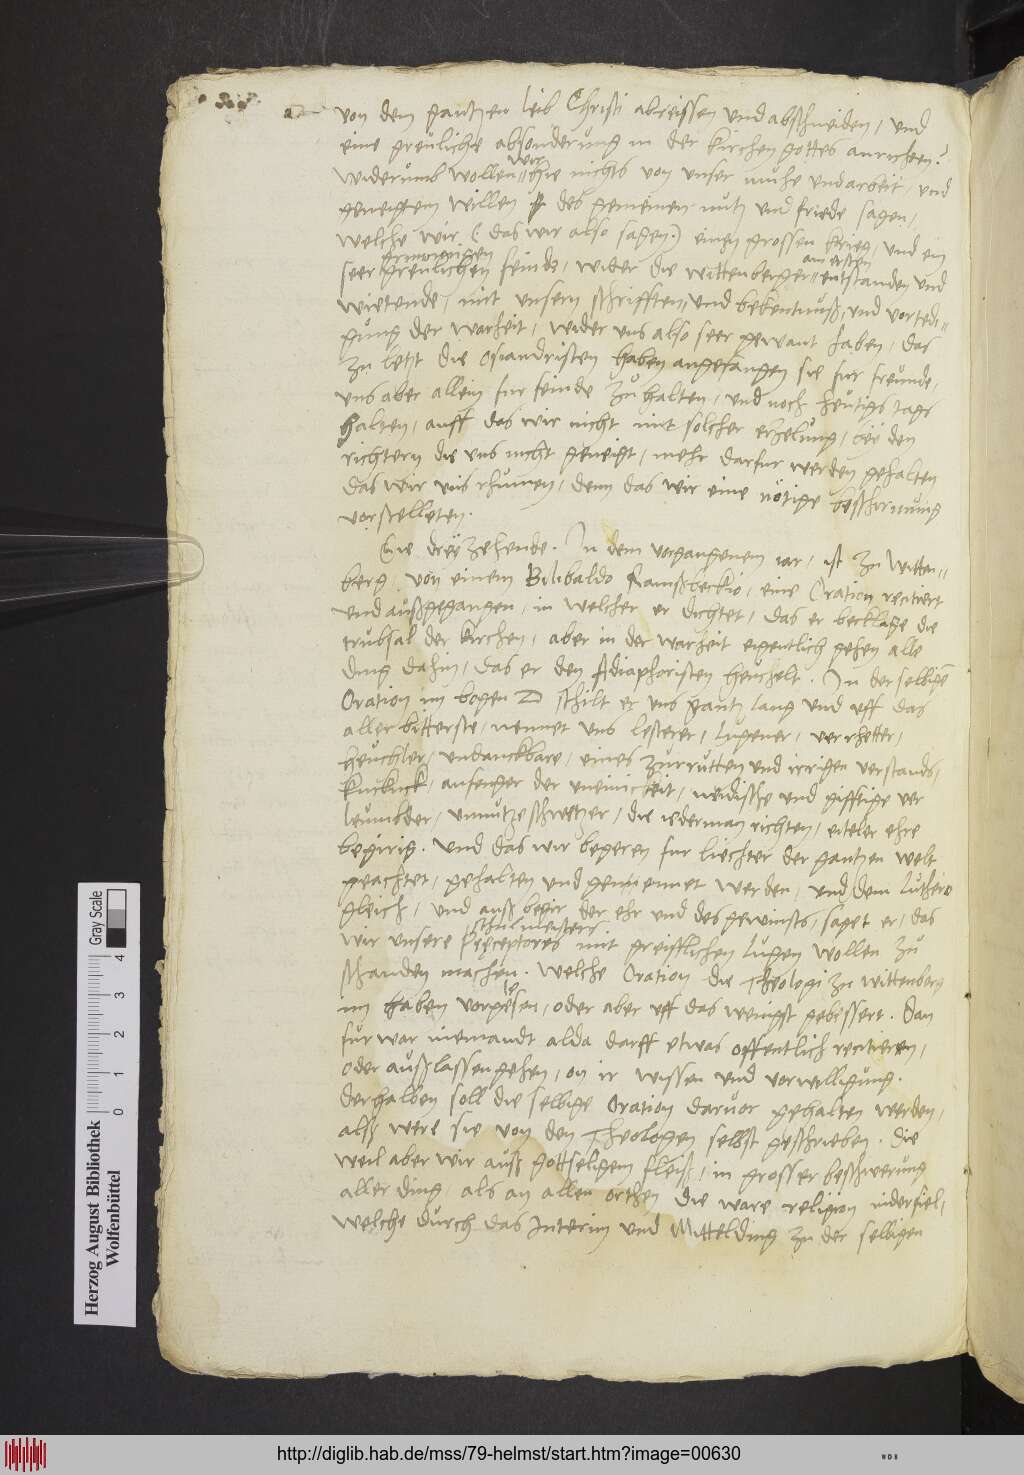 von dem gantzen leib Christi abreissen und abschneiden, und
eine greuliche absonderung in der kirchen gottes anrichten?
wir
widerumb wollen hie nichts von unser muhe und arbeit, und
geneigtem willen des gemeinen nutz und friede sagen,
welche wir (: das wir also sagen:) einen grossen krieg, und ein
grimmigen am ersten
seer greulichen feinde, wider die wittenberger entstanden und
wietende, mit unsern schrifften, und bekentnuß, und vortedi=
gung der warheit, wider uns also seer gewant haben, das
zu letzt die Osiandristen haben angefangen sie fur freunde,
uns aber allein fur feinde zu halten, und noch heutigs tags
halten, auff das wir nicht mit solcher erzelung, bey den
richtern die uns nicht geneigt, mehr darfur werden gehalten
das wir uns rhumen, denn das wir eine nötige beschirmung
vorstelleten.
Die dreyzehende. In dem vorgangenem iar, ist zu Witten=
berg, von einem Bilibaldo Ramßbeckio, eine Oration recitiert
und außgegangen, in welcher er dichtet, das er beklage die
trubsal der kirchen, aber in der warheit eigentlich gehen alle
ding dahin, das er den Adiaphoristen heuchelt. In der selbige
Oration im bogen D schilt er uns gantz lang und uff das
aller bitterste, nennet uns lesterer, lugener, verrhetter,
heuchler, undanckbare, eines zurrutten und irrigen verstands,
kuckuck, anfenger der uneinickeit, neidische und gifftige ver
leumbder, unnutze schwetzer, die iederman richten, eiteler ehre
begirig. Und das wir begeren fur liechter der gantzen welt
geachtet, gehalten und genennet werden, und dem luthero
gleich, und auß begir der ehr und des gewinsts, saget er, das
schulmeisterr
wir unsere Preceptores mit greifflichen lugen wollen zu
schanden machen. Welche Oration die Theologi zu wittenberg
im haben vorgesen, oder aber uff das wenigst gebessert. Dan
fur war niemandt alda darff etwas offentlich recitieren,
oder außlassen gehen, on ir wissen und vorwilligung.
Derhalben soll die selbige Oration darvor gehalten werden,
alß were sie von den Theologen selbst geschrieben. Die
weil aber wir auß gottseligem fleiß, in grosser beschwerung
aller ding, als an allen orthen die ware religion niderfiel,
welche durch das Interim und Mittelding zu der selbigen
Herzog August Bibliothek
Wolfenbüttel
0 1 2 3 4
Gray Scale
http://diglib.hab.de/mss/79-helmst/start.htm?image=00630